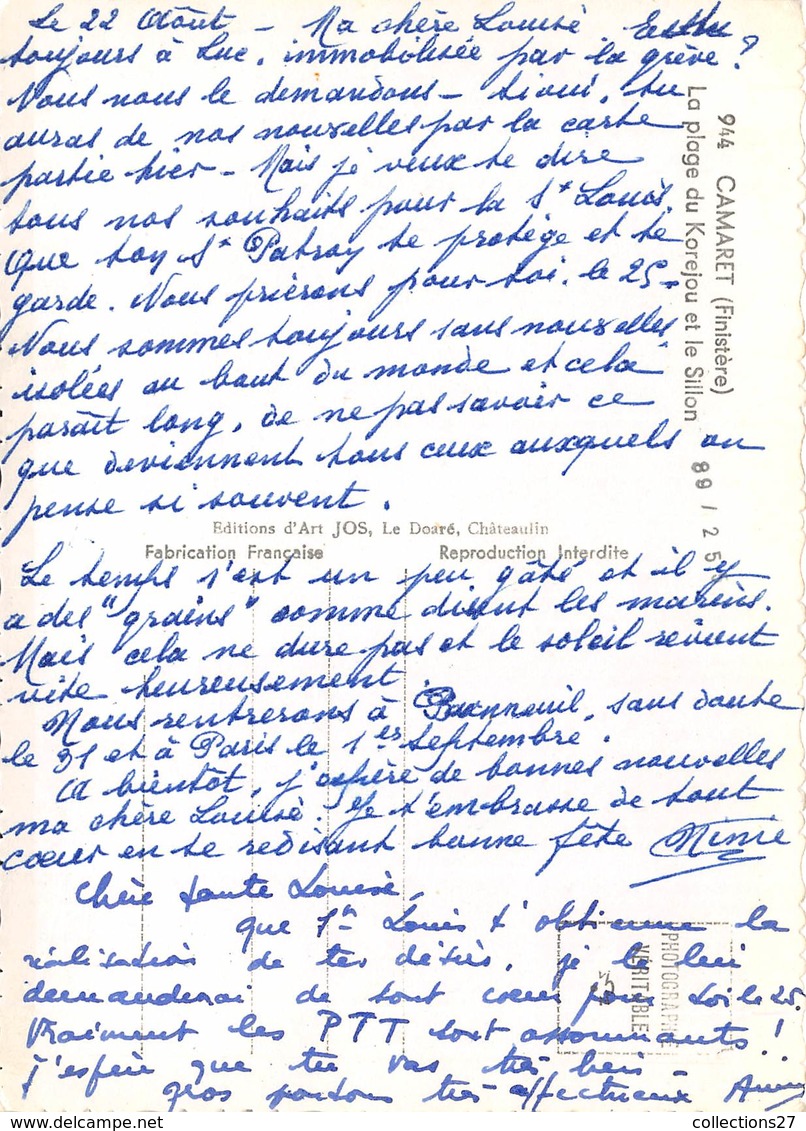 Le 22 Août - Ma chère Louise Es-tu
toujours à Luc, immobilisée par la grève ?
Nous nous le demandons - si oui, tu
auras de nos nouvelles par la carte
partie hier - Mais je veux te dire
tous nos souhaits pour la St Louis.
Que ton St Patron te protège et te
garde. Nous prierons pour toi, le 25 -
Nous sommes toujours sans nouvelles
isolées au bout du monde et cela
paraît long, de ne pas savoir ce
que deviennent tous ceux auxquels on
pense si souvent.
944 CAMARET (Finistère)
La plage du Korejou et le Sillon
89 / 25
Editions d'Art JOS, Le Doaré, Châteaulin
Fabrication Française Reproduction Interdite
Le temps s'est un peu gâté et il y
a des "grains" comme disent les marins.
Mais cela ne dure pas et le soleil revient
vite heureusement
Nous rentrerons à sans doute
le 31 et à Paris le 1er Septembre.
A bientôt, j'espère de bonnes nouvelles
ma chère Louise. Je t'embrasse de tout
cœur en te redisant bonne fête Mimie
Chère tante Louise,
que St Louis t'obtienne la
réalisation de tes désirs, je le lui
demanderai de tout cœur pour toi le 25.
Vraiment les PTT sont assommants !
J'espère que tu vas très bien -
Gros poutous très affectueux
PHOTOGRAPHIE
VÉRITABLE
collections27